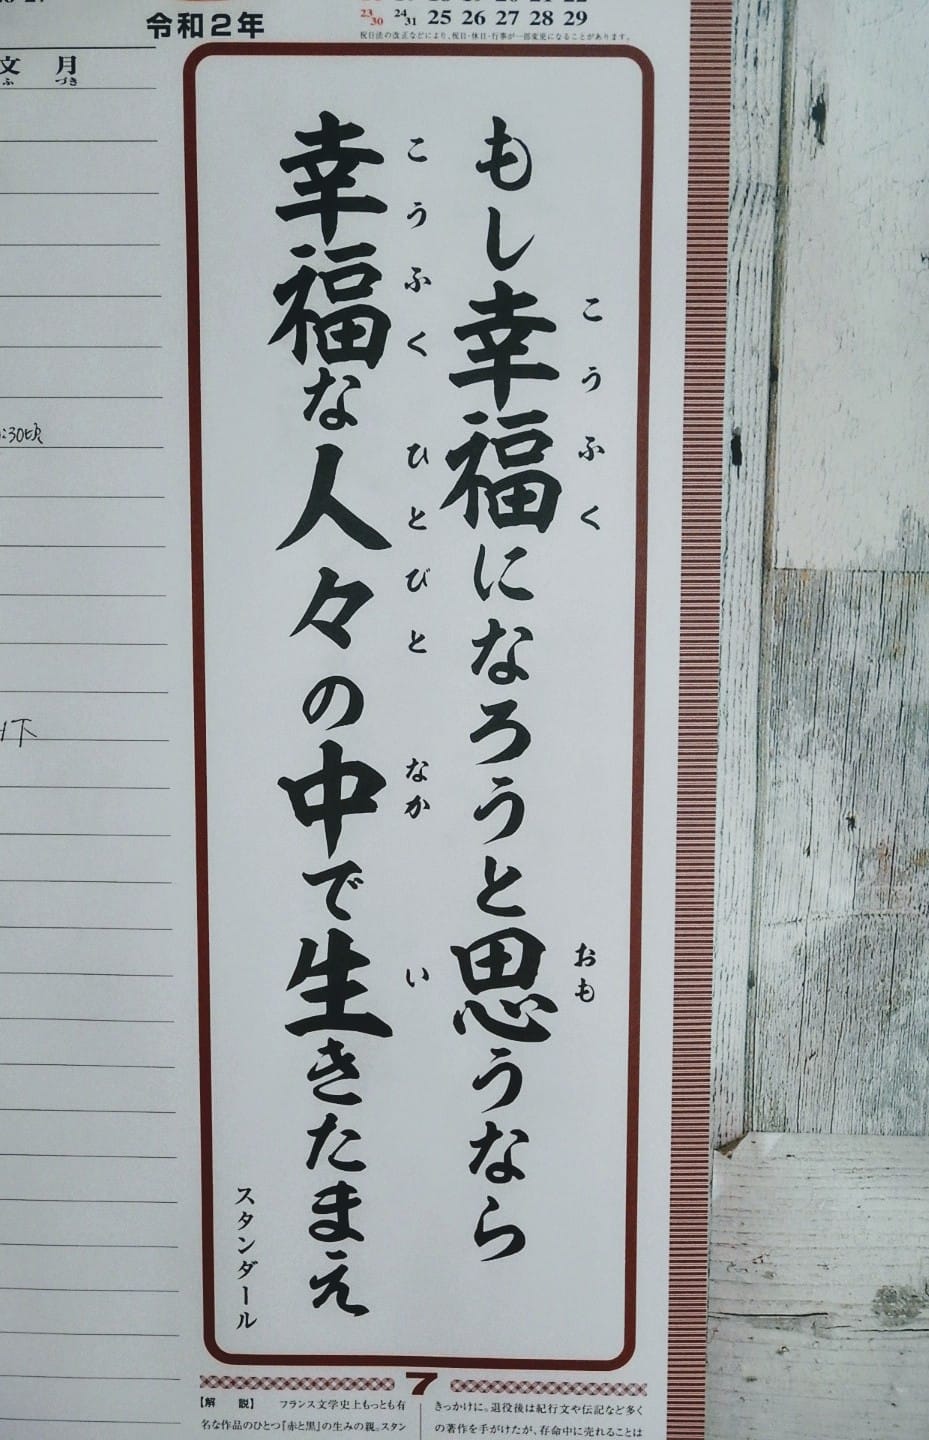 令和2年
23/30 24/31 25 26 27 28 29
祝日法の改正などにより、祝日・休日・行事が一部変更になることがあります。
文月
ふ づき
:30頃
下
もし幸福になろうと思うなら
こうふく おも
幸福な人々の中で生きたまえ
こうふく ひとびと なか い
スタンダール
7
【解 説】 フランス文学史上もっとも有
名な作品のひとつ『赤と黒』の生みの親。スタン
きっかけに。退役後は紀行文や伝記など多く
の著作を手がけたが、存命中に売れることは